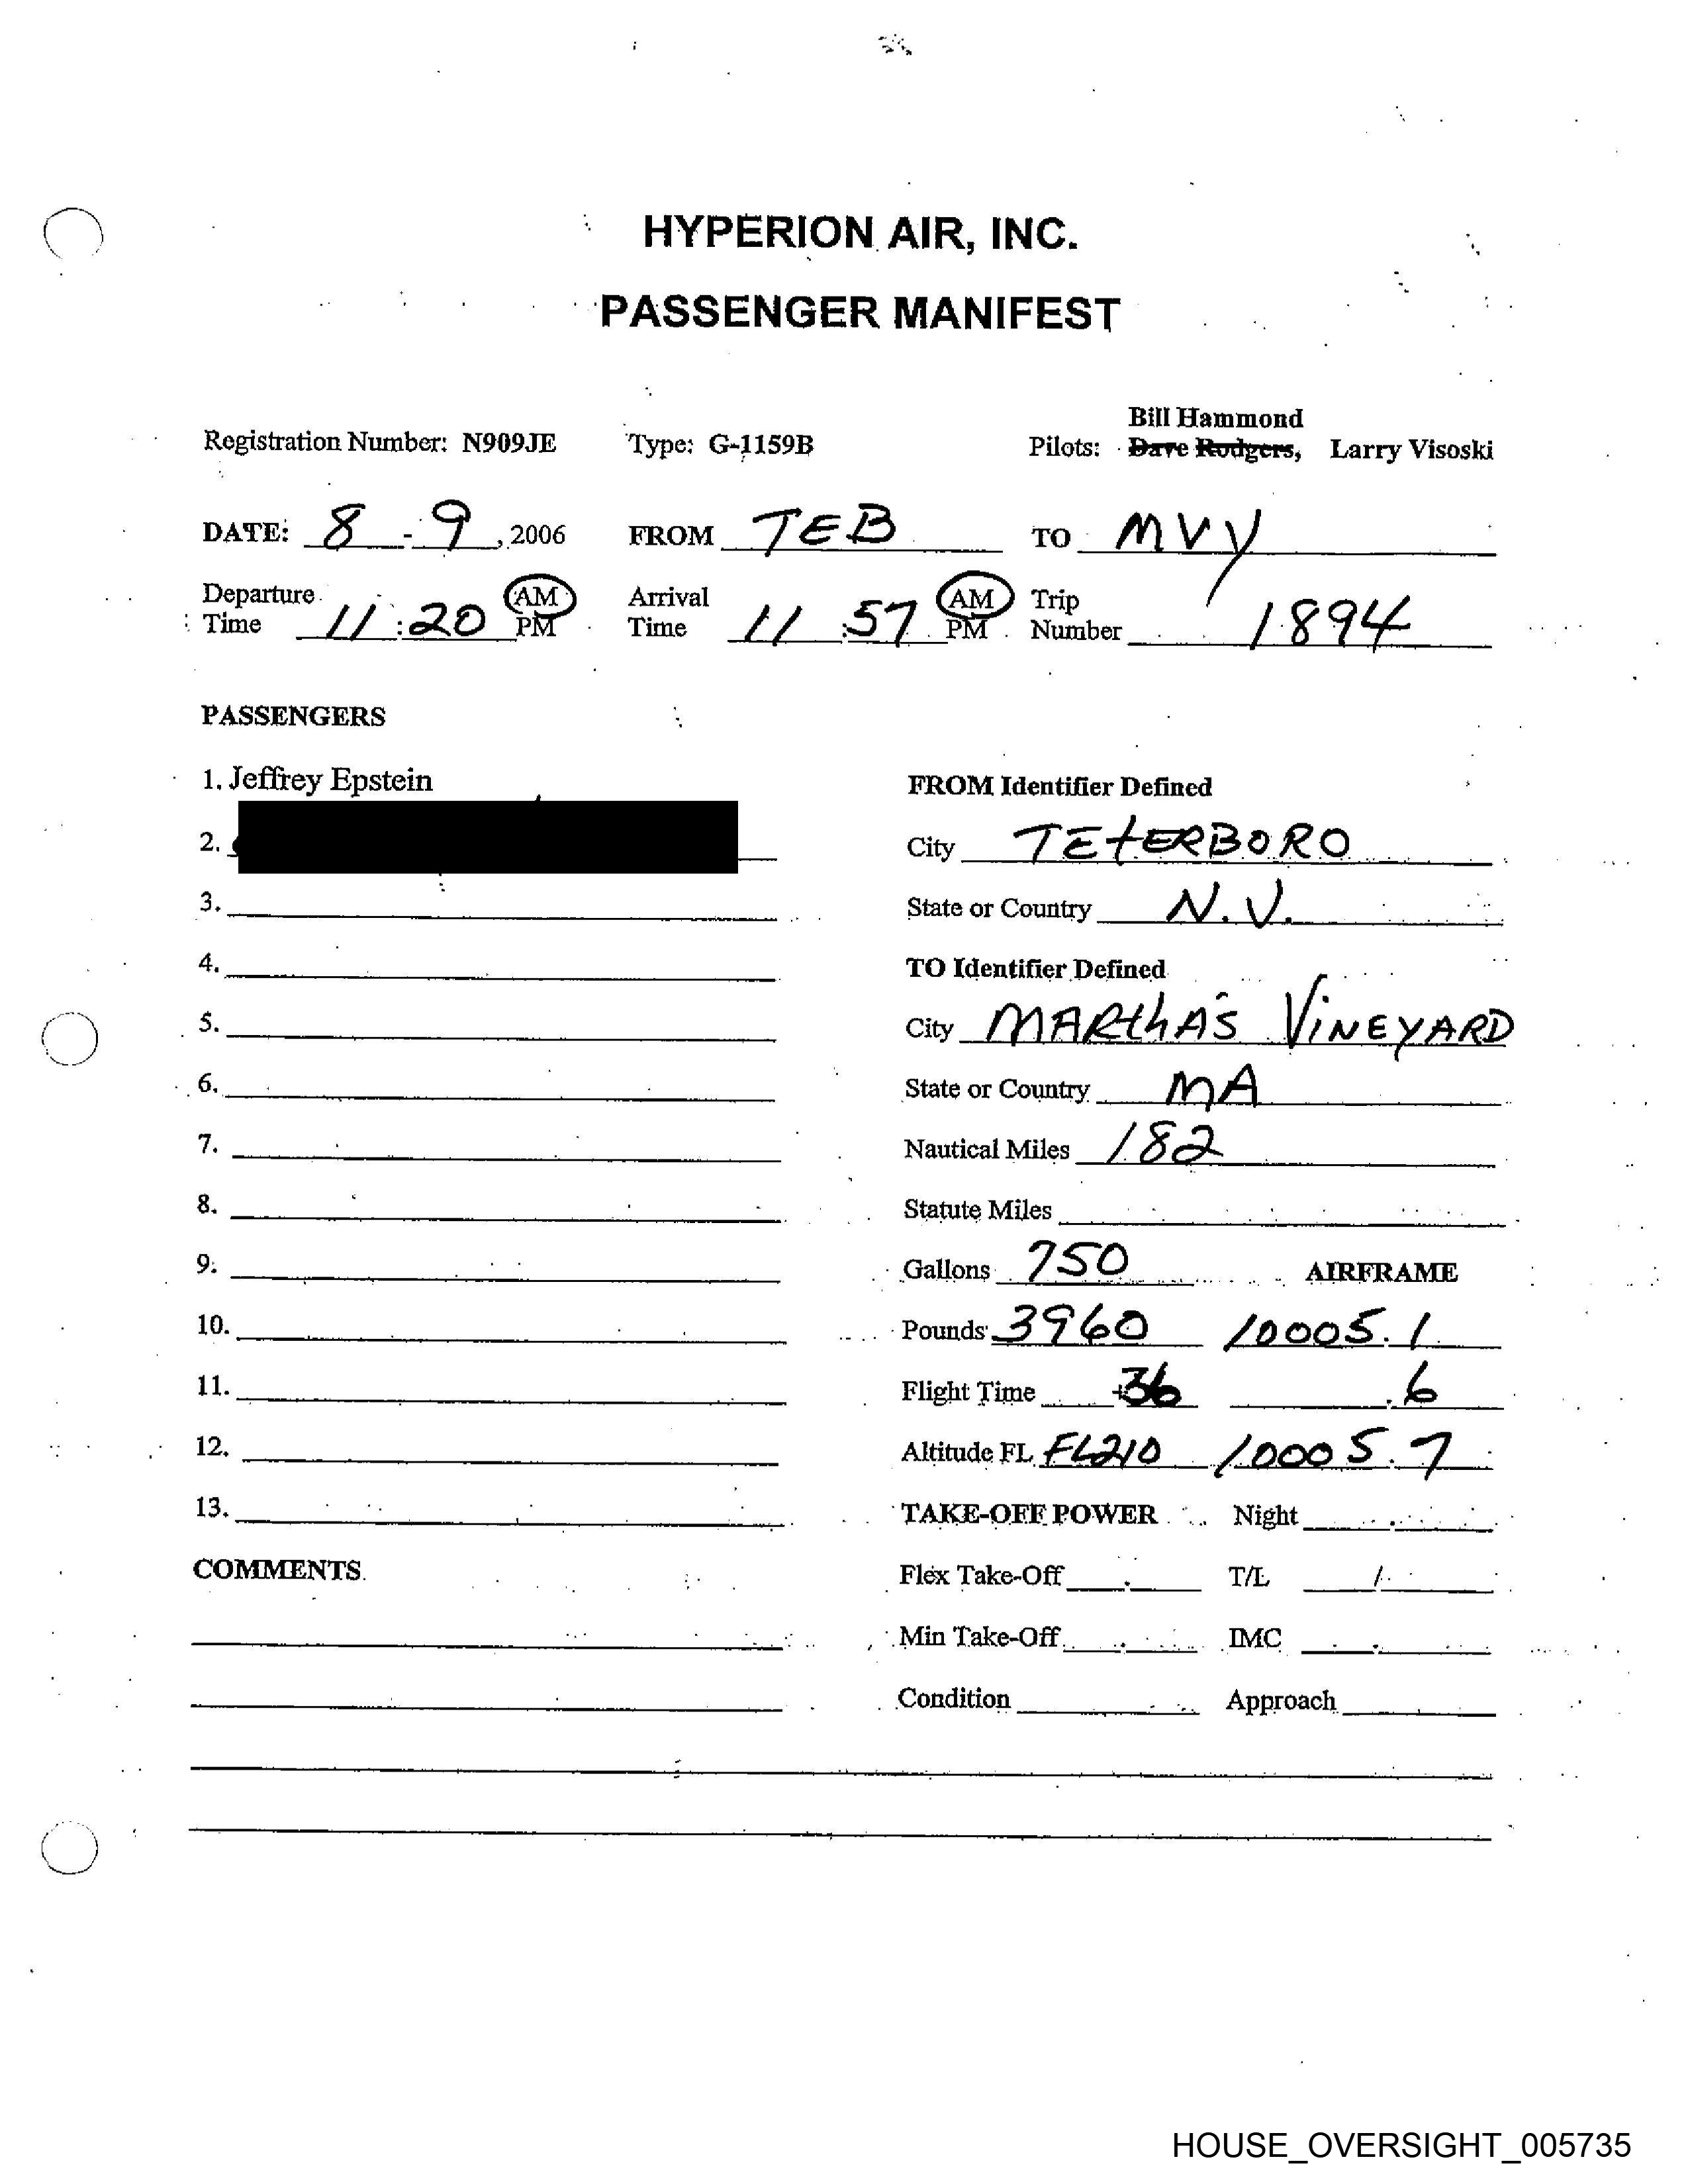 HYPERION AIR, INC.
PASSENGER MANIFEST
Bill Hammond
Registration Number: N909JE Type: G-1159B Pilots: Dave Rodgers, Larry Visoski
DATE: 8 - 9, 2006 FROM TEB TO MVY
Departure Time 11:20 AM PM Arrival Time 11:57 AM PM Trip Number 1894
PASSENGERS
1. Jeffrey Epstein
2.
3.
4.
5.
6.
7.
8.
9.
10.
11.
12.
13.
COMMENTS
FROM Identifier Defined
City TETERBORO
State or Country N.V.
TO Identifier Defined
City MARTHA'S VINEYARD
State or Country MA
Nautical Miles 182
Statute Miles
Gallons 750 AIRFRAME
Pounds 3960 10005.1
Flight Time +36 .6
Altitude FL FL210 10005.7
TAKE-OFF POWER Night
Flex Take-Off T/L /
Min Take-Off IMC
Condition Approach
HOUSE_OVERSIGHT_005735